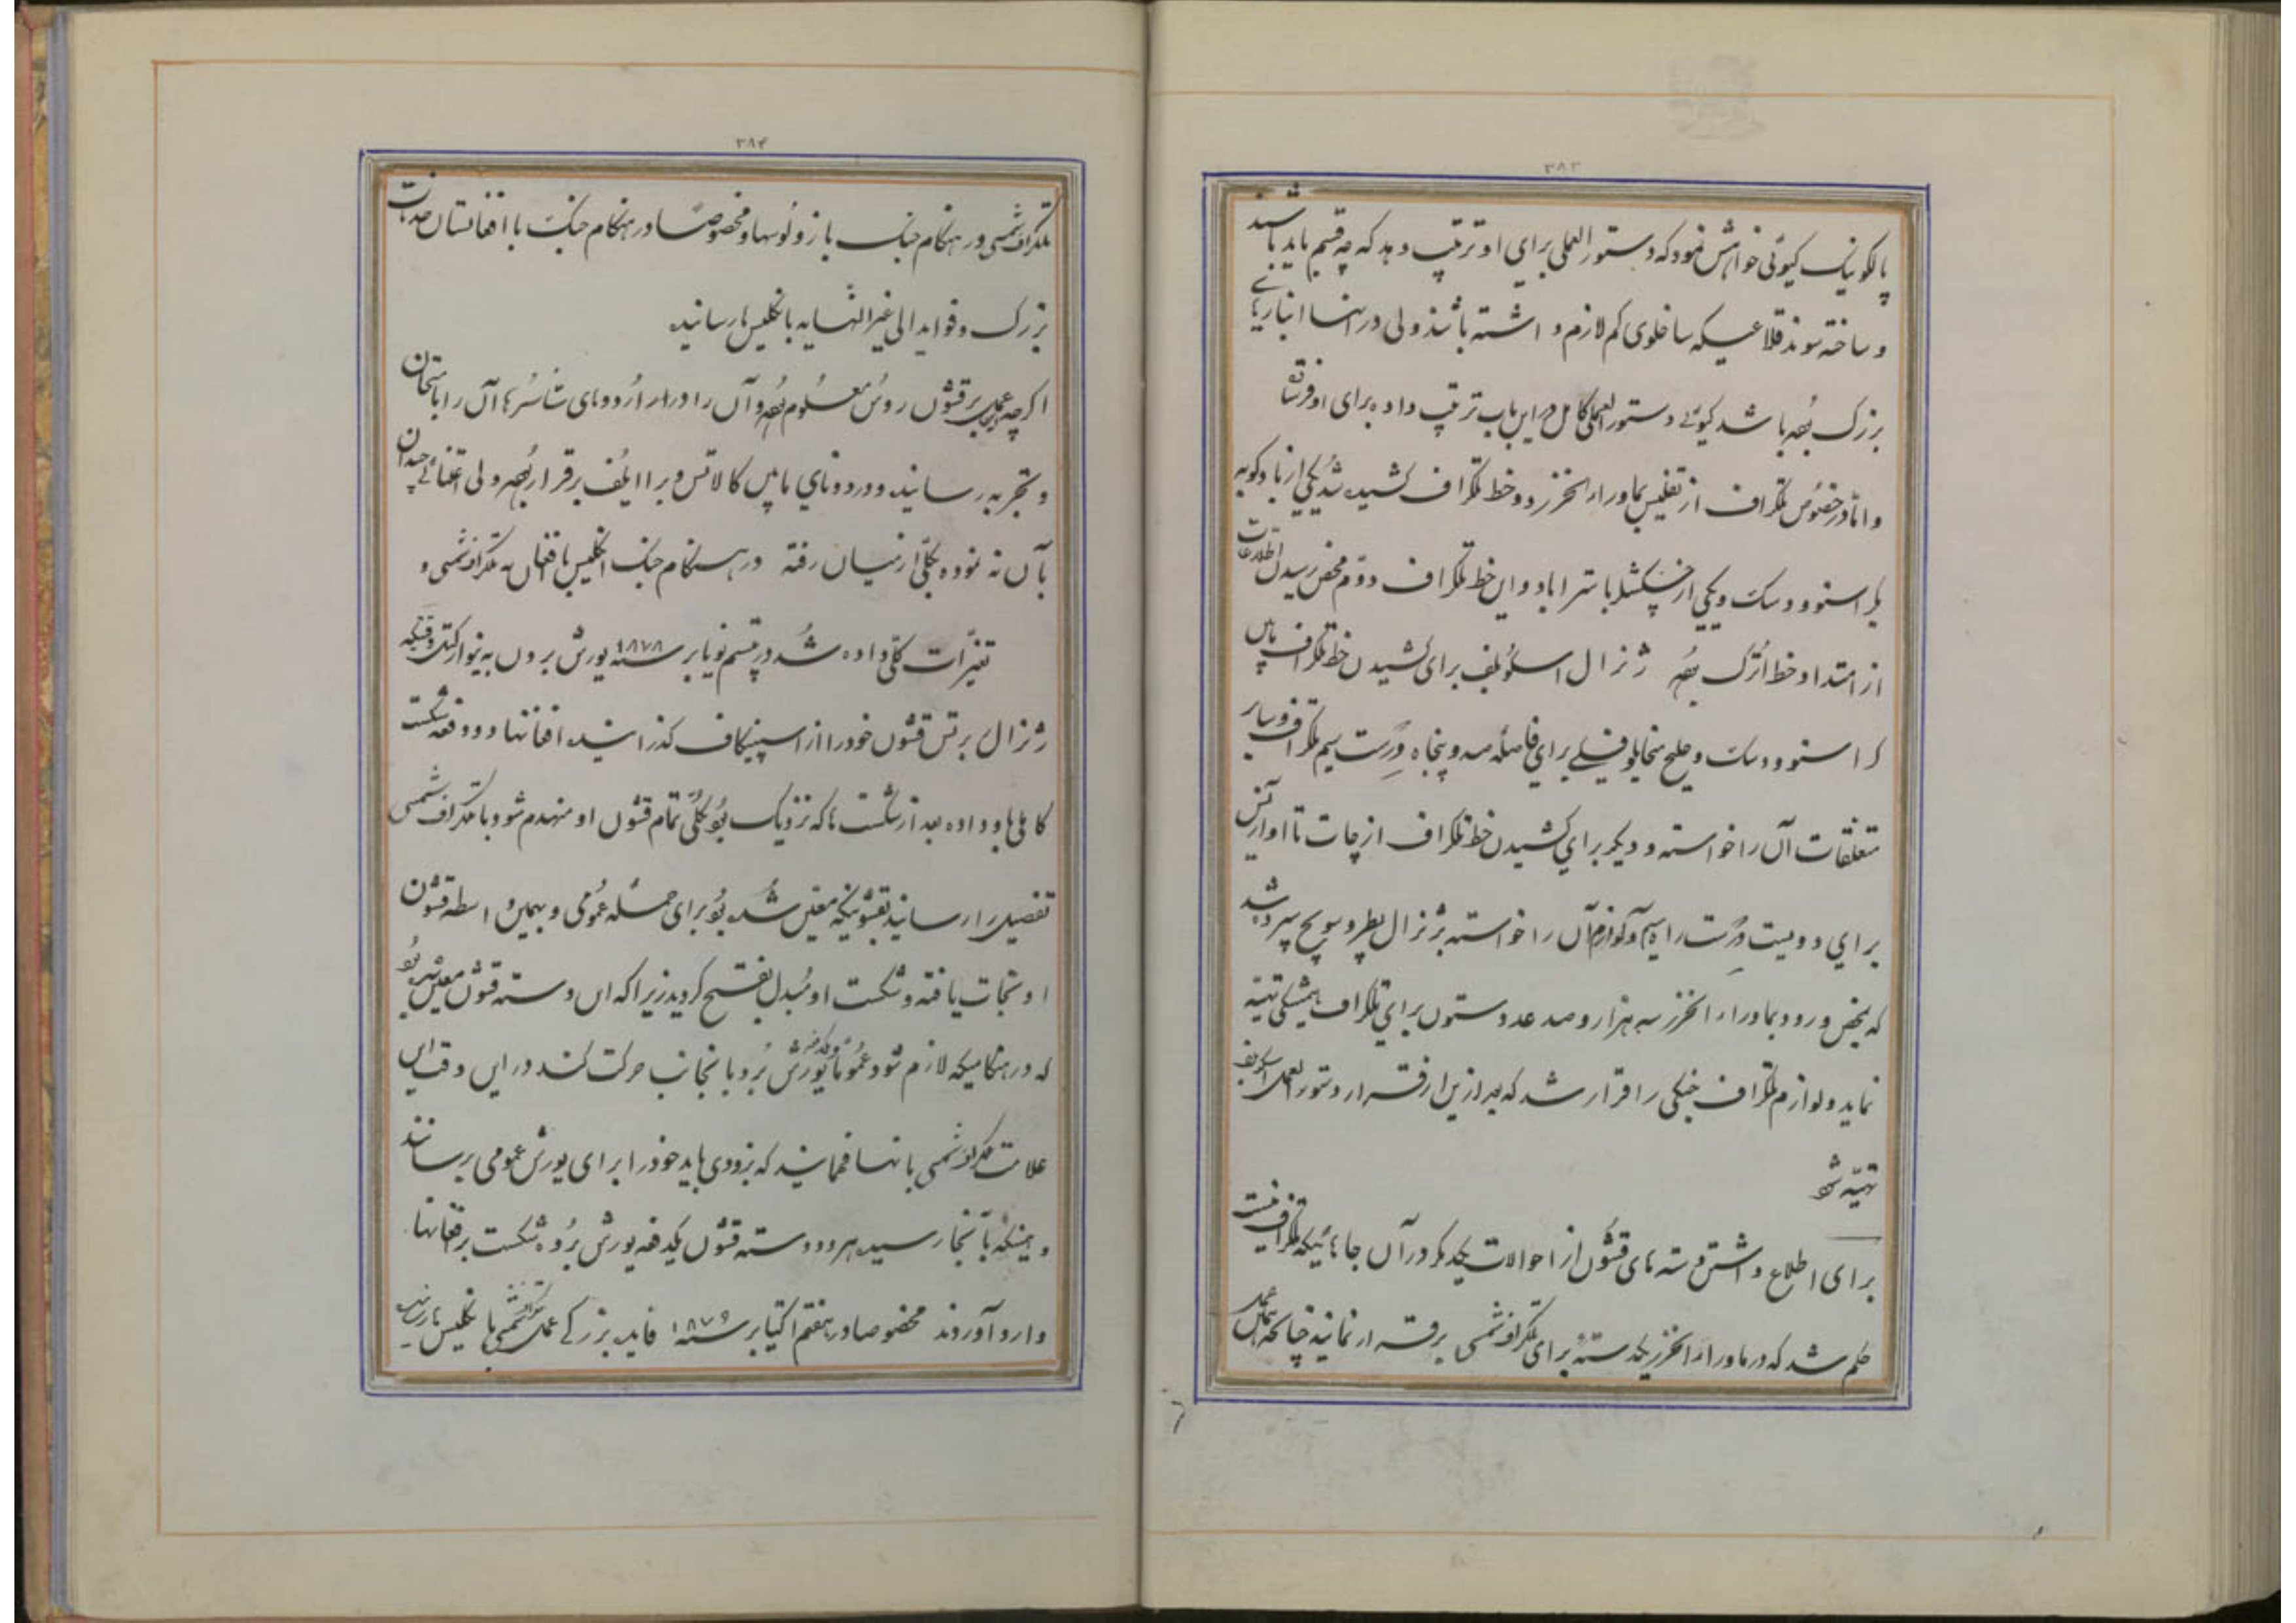 ۳۸۳
پالکونیک کیوئی خواهش نمود که دستورالعملی برای او ترتیب دهد که چه قسم باید باشند
و ساخته شوند قلاعیکه ساخلوی کم لازم داشته باشند ولی در آنها انبارهای
بزرگ بوده باشد کیوئی دستورالعمل کامل در این باب ترتیب داده برای او فرستاد
و اما در خصوص تلگراف از تفلیس بماوراء الخزر دو خط تلگراف کشیده شد یکی از بادکوبه
بکراسنوودسک و یکی از چکشلر باستراباد و این خط تلگراف دوم محض رسیدن اطلاعات
از امتداد خط اترک بوده ژنرال اسکوبلف برای کشیدن خط تلگراف مابین
کراسنوودسک و خلیج میخایلوفیسلی برای فاصله صد و پنجاه ورست سیم تلگراف و سایر
متعلقات آن را خواسته و دیگر برای کشیدن خط تلگراف از چات تا
برای دویست ورست راه سیم و لوازم آن را خواسته بژنرال پطروسویچ سپرده شد
که بمحض ورود بماوراء الخزر سه هزار و صد عدد ستون برای تلگراف همیشگی تهیه
نماید و لوازم تلگراف جنگی را قرار شد که بعد از این از قرار دستورالعمل اسکوبلف
تهیه شود
برای اطلاع داشتن دسته های قشون از احوالات یکدیگر در آن جاهائیکه تلگراف نیست
حکم شد که در ماوراء الخزر یکدسته برای تلگراف شمسی برقرار نمایند چنانکه همان عمل
۳۸۴
تلگراف شمسی در هنگام جنگ با زولوسها و مخصوصا در هنگام جنگ با افغانستان خدمات
بزرگ و فواید الی غیر النهایه بانگلیس ها رسانید
اگرچه عمل برقشون روس معلوم بوده و آن را در اردوهای تا آن را بامتحان
و تجربه رسانیدند و در دونای مابین کالاتس و براایلف برقرار بوده ولی اعتنائی چندان
بآن نه نموده بکلی از میان رفته در هنگام جنگ انگلیس با افغان به تلگراف شمسی و
تغیرات کلی داده شد در بیستم نویابر سنه ۱۸۷۸ یورش بردن به وقتیکه
ژنرال برتس قشون خود را از اسپینکاف گذرانید افغانها دو دفعه شکست
کاملی باو داده بعد از شکست ها که نزدیک بود بکلی تمام قشون او منهدم شود با تلگراف شمسی
تفصیل را رسانید بقشونیکه معین شده بود برای حمله عمومی و بهمین واسطه قشون
او نجات یافته و شکست او مبدل بفتح گردید زیرا که آن دسته قشون معین شده بود
که در هنگامیکه لازم شود عموما یورش برد بآنجانب حرکت کند در این وقت این
علامت تلگراف شمسی بآنها فهمانید که بزودی باید خود را برای یورش عمومی برسانند
و همینکه بآنجا رسید هر دو دسته قشون یکدفعه یورش برده شکست بر افغانها
وارد آوردند مخصوصا در هفتم اکتیابر سنه ۱۸۷۹ فایده بزرگی عمل تلگراف شمسی بانگلیس ها رسانید